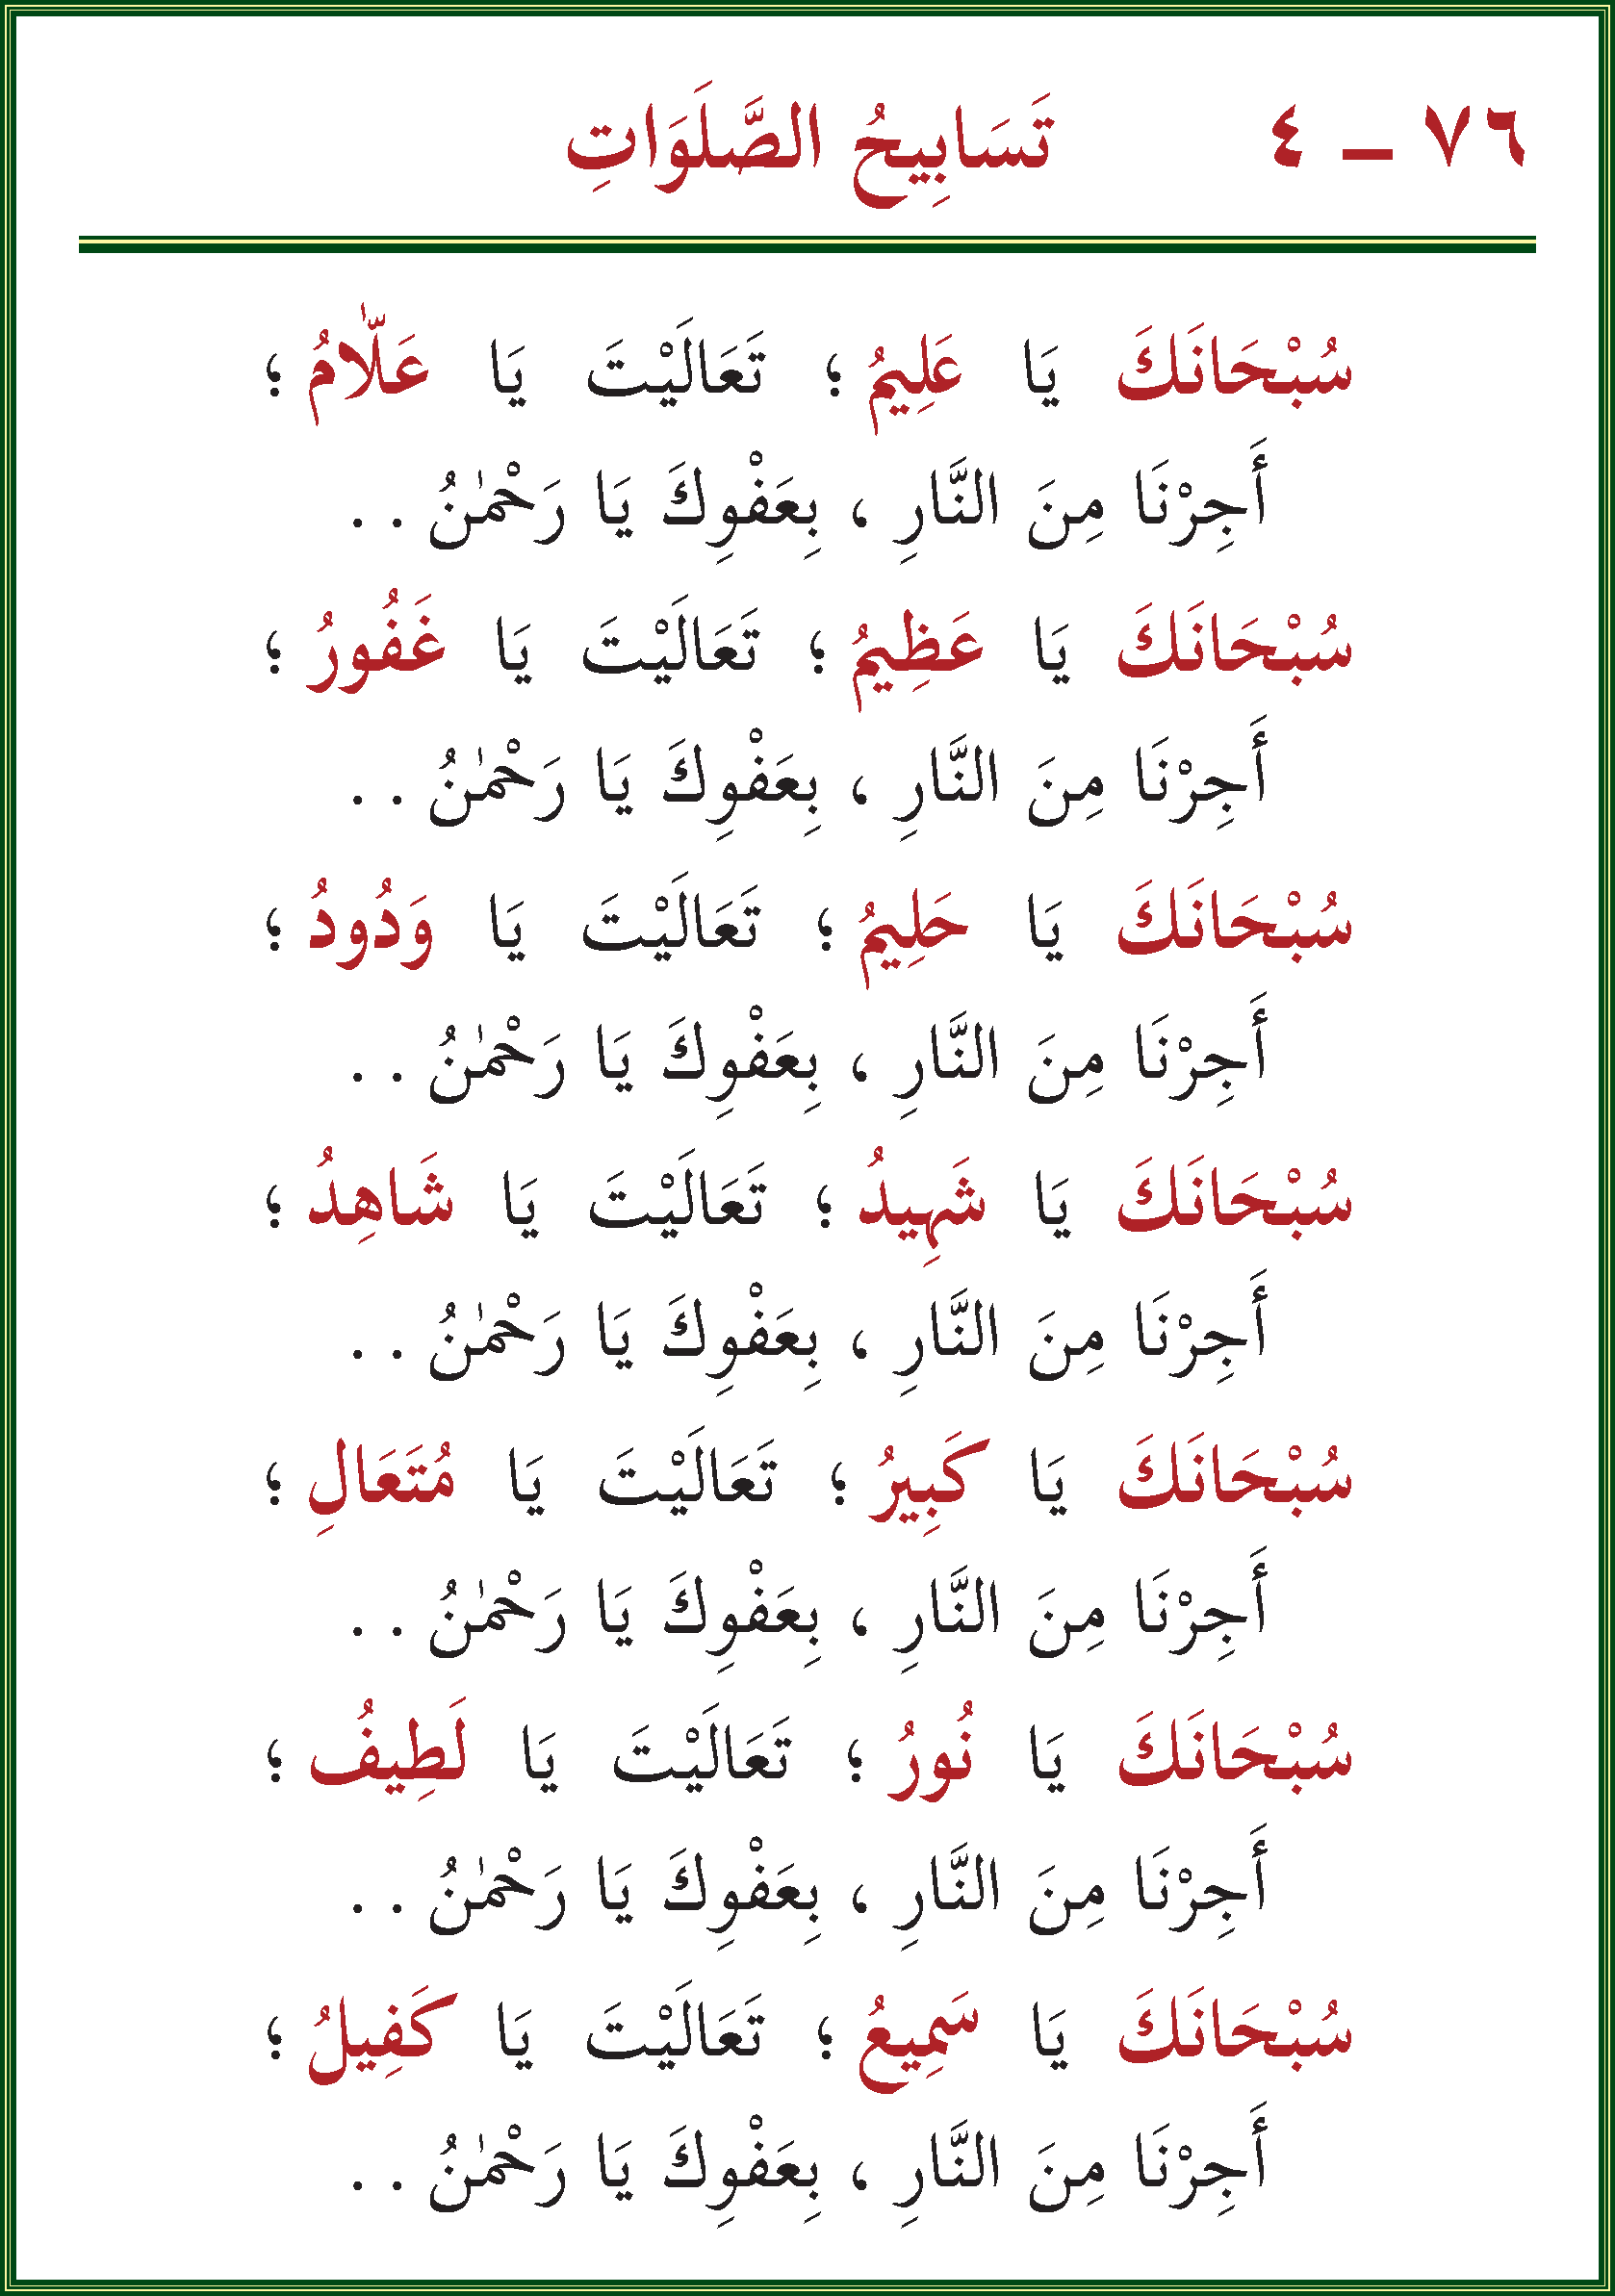 ٧٦ ــ ٤ تَسَابِيحُ الصَّلَوَاتِ
سُبْحَانَكَ يَا عَلِيمُ ؛ تَعَالَيْتَ يَا عَلّٰامُ ؛
أَجِرْنَا مِنَ النَّارِ ، بِعَفْوِكَ يَا رَحْمٰنُ . .
سُبْحَانَكَ يَا عَظِيمُ ؛ تَعَالَيْتَ يَا غَفُورُ ؛
أَجِرْنَا مِنَ النَّارِ ، بِعَفْوِكَ يَا رَحْمٰنُ . .
سُبْحَانَكَ يَا حَلِيمُ ؛ تَعَالَيْتَ يَا وَدُودُ ؛
أَجِرْنَا مِنَ النَّارِ ، بِعَفْوِكَ يَا رَحْمٰنُ . .
سُبْحَانَكَ يَا شَهِيدُ ؛ تَعَالَيْتَ يَا شَاهِدُ ؛
أَجِرْنَا مِنَ النَّارِ ، بِعَفْوِكَ يَا رَحْمٰنُ . .
سُبْحَانَكَ يَا كَبِيرُ ؛ تَعَالَيْتَ يَا مُتَعَالِ ؛
أَجِرْنَا مِنَ النَّارِ ، بِعَفْوِكَ يَا رَحْمٰنُ . .
سُبْحَانَكَ يَا نُورُ ؛ تَعَالَيْتَ يَا لَطِيفُ ؛
أَجِرْنَا مِنَ النَّارِ ، بِعَفْوِكَ يَا رَحْمٰنُ . .
سُبْحَانَكَ يَا سَمِيعُ ؛ تَعَالَيْتَ يَا كَفِيلُ ؛
أَجِرْنَا مِنَ النَّارِ ، بِعَفْوِكَ يَا رَحْمٰنُ . .